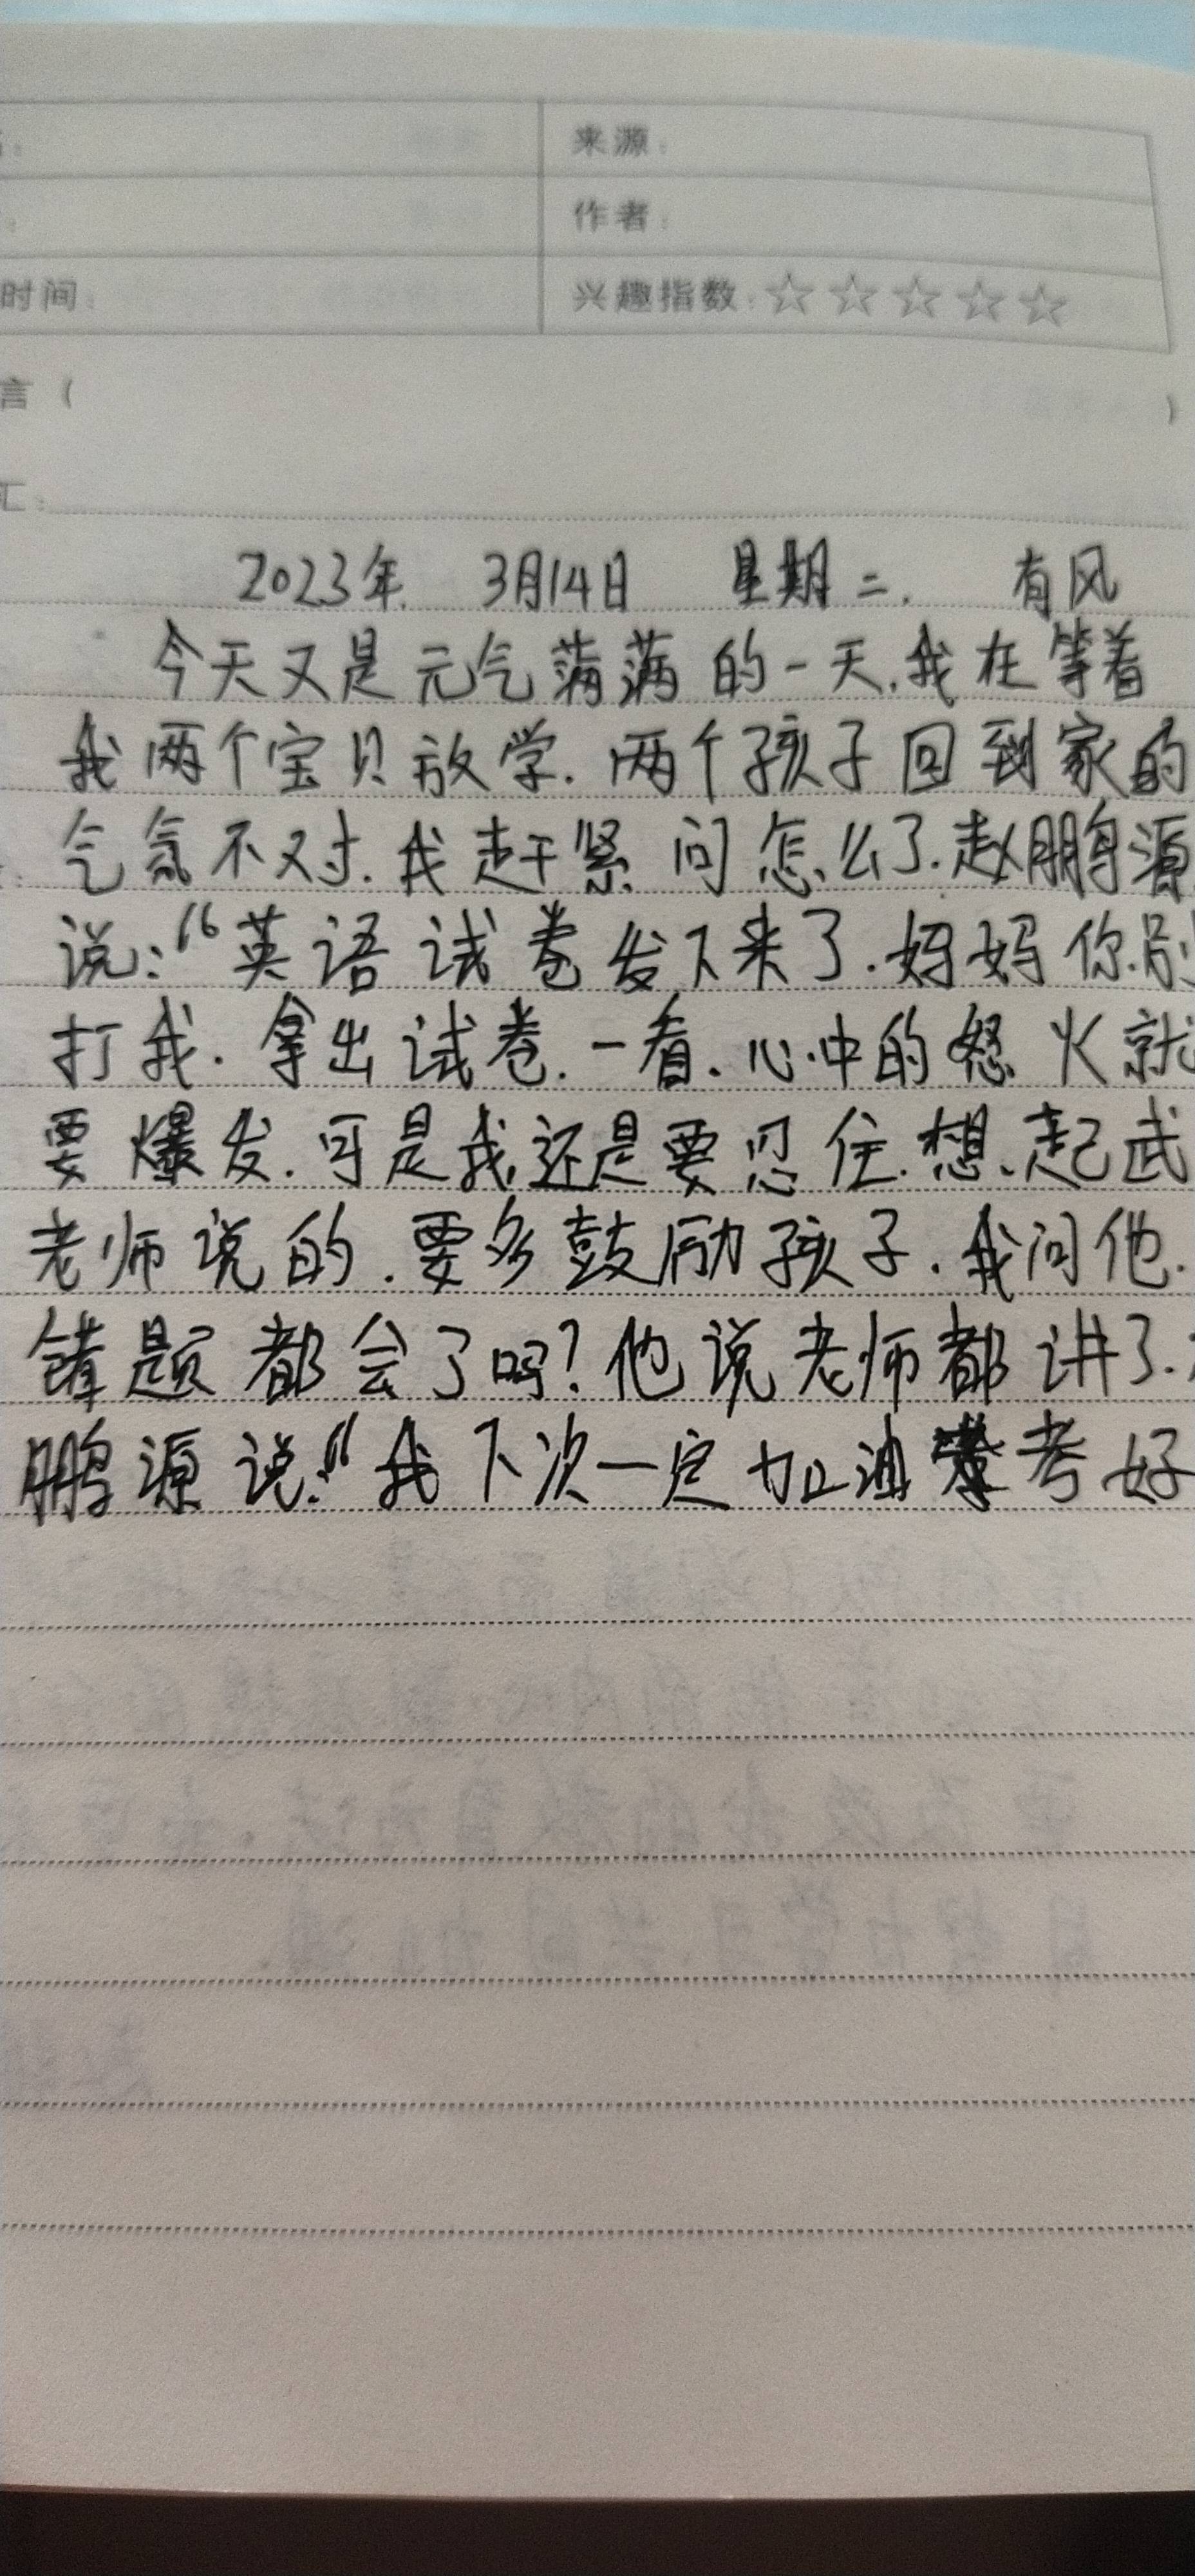 来源：
作者：
时间：
兴趣指数：☆☆☆☆☆
言（ ）
汇：
2023年 3月14日 星期二. 有风
今天又是元气满满的一天.我在等着
我两个宝贝放学.两个孩子回到家的
气氛不对.我赶紧问怎么了.赵鹏源
说:“英语试卷发下来了.妈妈你别
打我.拿出试卷.一看.心中的怒火就
要爆发.可是我还是要忍住.想起武
老师说的.要多鼓励孩子.我问他.
错题都会了吗?他说老师都讲了.
鹏源说:“我下次一定加油考好